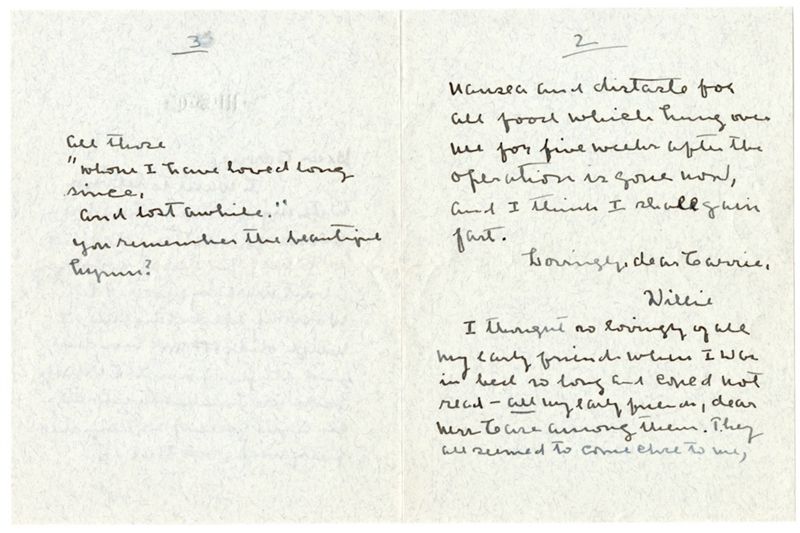 2
nausea and distaste for
all food which hung over
me for five weeks after the
operation is gone now,
and I think I shall gain
fast.
Lovingly, dear Carrie,
Willie
I thought so lovingly of all
my early friends when I was
in bed so long and could not
read - all my early friends, dear
among them. They
all seemed to come close to me,
3
all those
"whom I have loved long
since,
and lost awhile."
You remember the beautiful
hymn?